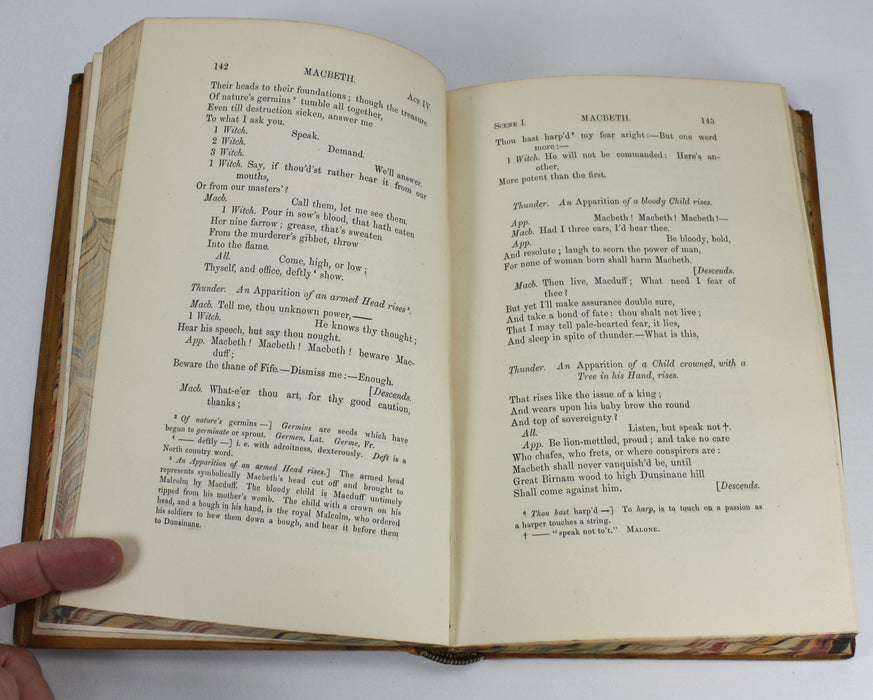 142
MACBETH.
Act IV.
Their heads to their foundations; though the treasure
Of nature's germins³ tumble all together,
Even till destruction sicken, answer me
To what I ask you.
1 Witch. Speak.
2 Witch. Demand.
3 Witch. We'll answer.
1 Witch. Say, if thou'dst rather hear it from our
mouths,
Or from our masters'?
Macb. Call them, let me see them.
1 Witch. Pour in sow's blood, that hath eaten
Her nine farrow; grease, that's sweaten
From the murderer's gibbet, throw
Into the flame.
All. Come, high, or low;
Thyself, and office, deftly⁴ show.
Thunder. An Apparition of an armed Head rises⁵.
Macb. Tell me, thou unknown power,——
1 Witch. He knows thy thought;
Hear his speech, but say thou nought.
App. Macbeth! Macbeth! Macbeth! beware Mac-
duff;
Beware the thane of Fife.—Dismiss me:—Enough.
[Descends.
Macb. What-e'er thou art, for thy good caution,
thanks;
³ Of nature's germins —] Germins are seeds which have
begun to germinate or sprout. Germen, Lat. Germe, Fr.
⁴ —— deftly —] i. e. with adroitness, dexterously. Deft is a
North country word.
⁵ An Apparition of an armed Head rises.] The armed head
represents symbolically Macbeth's head cut off and brought to
Malcolm by Macduff. The bloody child is Macduff untimely
ripped from his mother's womb. The child with a crown on his
head, and a bough in his hand, is the royal Malcolm, who ordered
his soldiers to hew them down a bough, and bear it before them
to Dunsinane.
Scene I.
MACBETH.
143
Thou hast harp'd⁶ my fear aright:—But one word
more:—
1 Witch. He will not be commanded: Here's an-
other,
More potent than the first.
Thunder. An Apparition of a bloody Child rises.
App. Macbeth! Macbeth! Macbeth!—
Macb. Had I three ears, I'd hear thee.
App. Be bloody, bold,
And resolute; laugh to scorn the power of man,
For none of woman born shall harm Macbeth.
[Descends.
Macb. Then live, Macduff; What need I fear of
thee?
But yet I'll make assurance double sure,
And take a bond of fate: thou shalt not live;
That I may tell pale-hearted fear, it lies,
And sleep in spite of thunder.—What is this,
Thunder. An Apparition of a Child crowned, with a
Tree in his Hand, rises.
That rises like the issue of a king;
And wears upon his baby brow the round
And top of sovereignty?
All. Listen, but speak not†.
App. Be lion-mettled, proud; and take no care
Who chafes, who frets, or where conspirers are:
Macbeth shall never vanquish'd be, until
Great Birnam wood to high Dunsinane hill
Shall come against him. [Descends.
⁶ Thou hast harp'd —] To harp, is to touch on a passion as
a harper touches a string.
† — "speak not to't." MALONE.